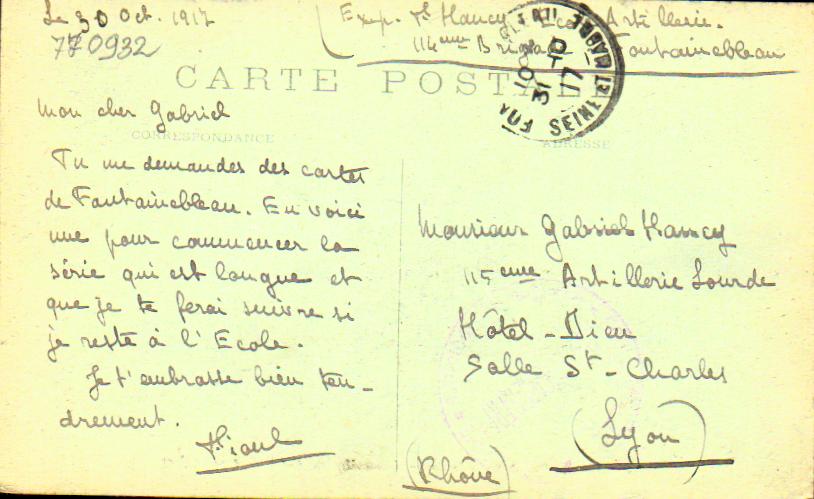 Le 30 Oct. 1917
770932
Exp. Hancy Ecole Artillerie.
114ème Brigade Fontainebleau
CARTE POSTALE
10
31 10
17
SEINE ET MARNE
Mon cher Gabriel
CORRESPONDANCE
ADRESSE
Tu me demandes des cartes
de Fontainebleau. En voici
une pour commencer la
série qui est longue et
que je te ferai suivre si
je reste à l'Ecole.
Je t'embrasse bien ten-
drement.
Monsieur Gabriel Hancy
115eme Artillerie Lourde
Hôtel-Dieu
Salle St-Charles
(Lyon)
(Rhône)